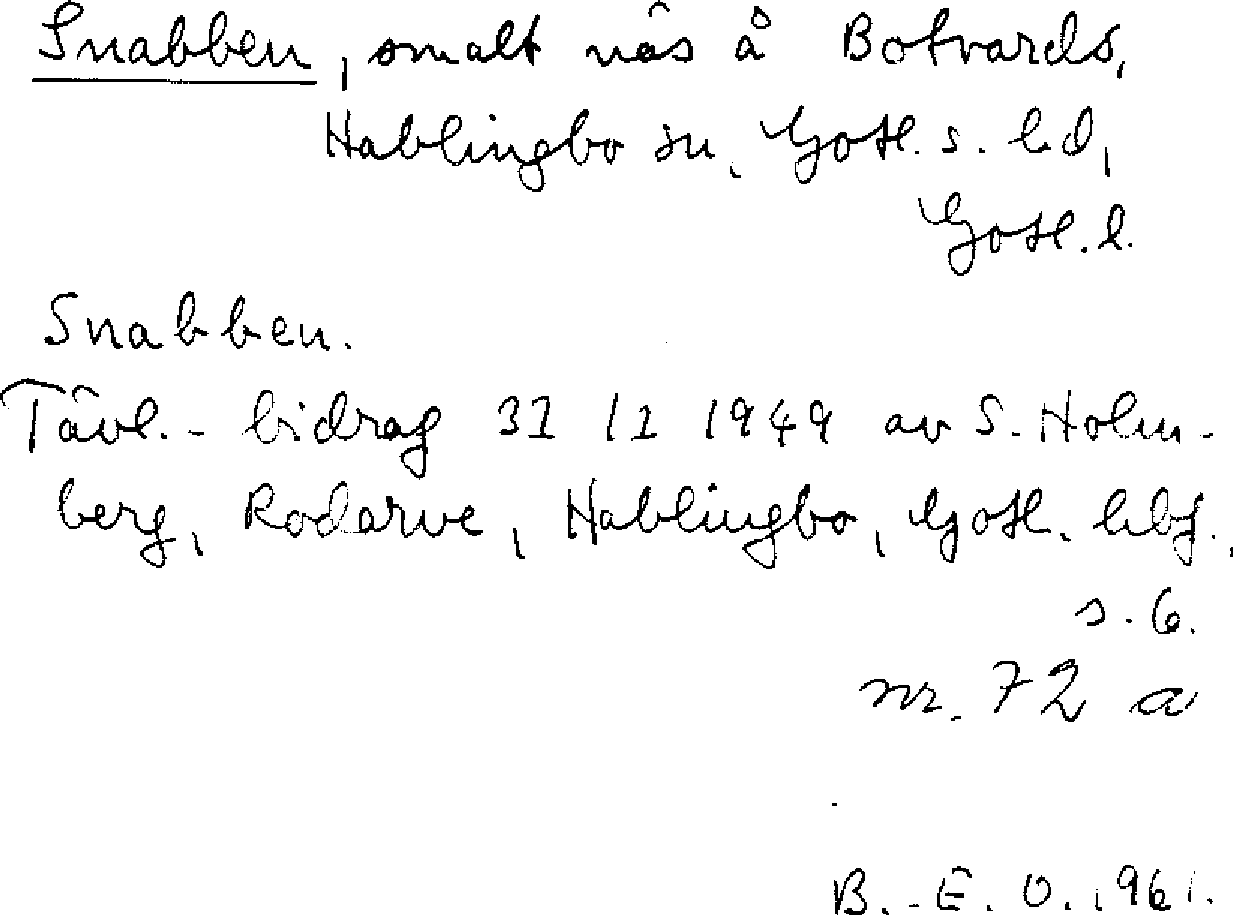 Snabben, smalt näs å Botvards,
Hablingbo sn, Gotl. s. hd,
Gotl. l.
Snabben.
Tävl.-bidrag 31/1 1949 av S. Holm-
berg, Rodarve, Hablingbo, Gotl. hbf.,
s. 6.
nr. 72 a
B.-E. O. 1961.